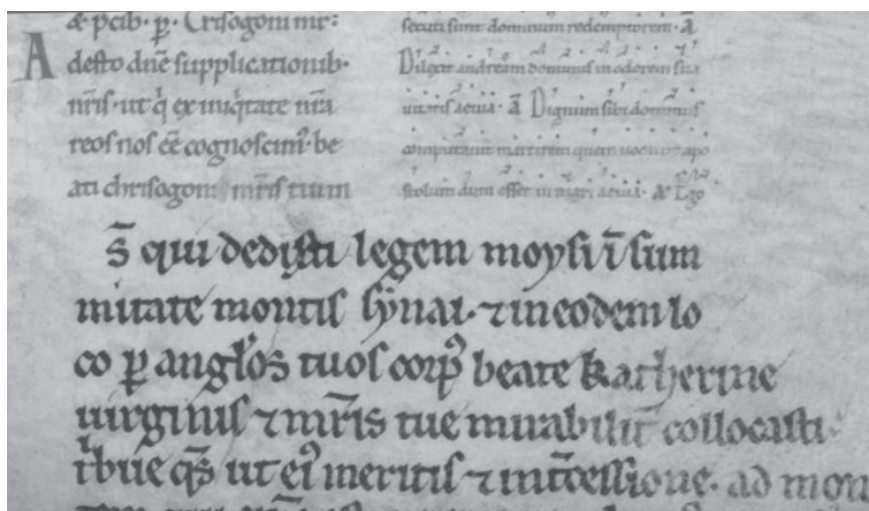 & p̄cib· ꝑ· Crisogoni mr̄:
Adesto dn̄e supplicationib·
nr̄is· ut qͥ ex iniqͥtate nr̄a
reos nos ēē cognoscimꝰ· be
ati chrisogoni mr̄is tuum
secuti sunt dominum redemptorem· ā
Dilexit andream dominus in odorem sua
uitatis aeuia· ā Dignum sibi dominus
computauit martirem quem uocauit apo
stolum dum esset in mari aeuia· ā Ego
s̄ qui dedisti legem moysi ī sum
mitate montis synai· ⁊ in eodem lo
co ꝑ angl̄os tuos corpꝰ beate katherine
uirginis ⁊ mr̄is tue mirabilit̄ collocasti·
tͥbue qs̄ ut eiꝰ meritis ⁊ int̄cessione· ad mon